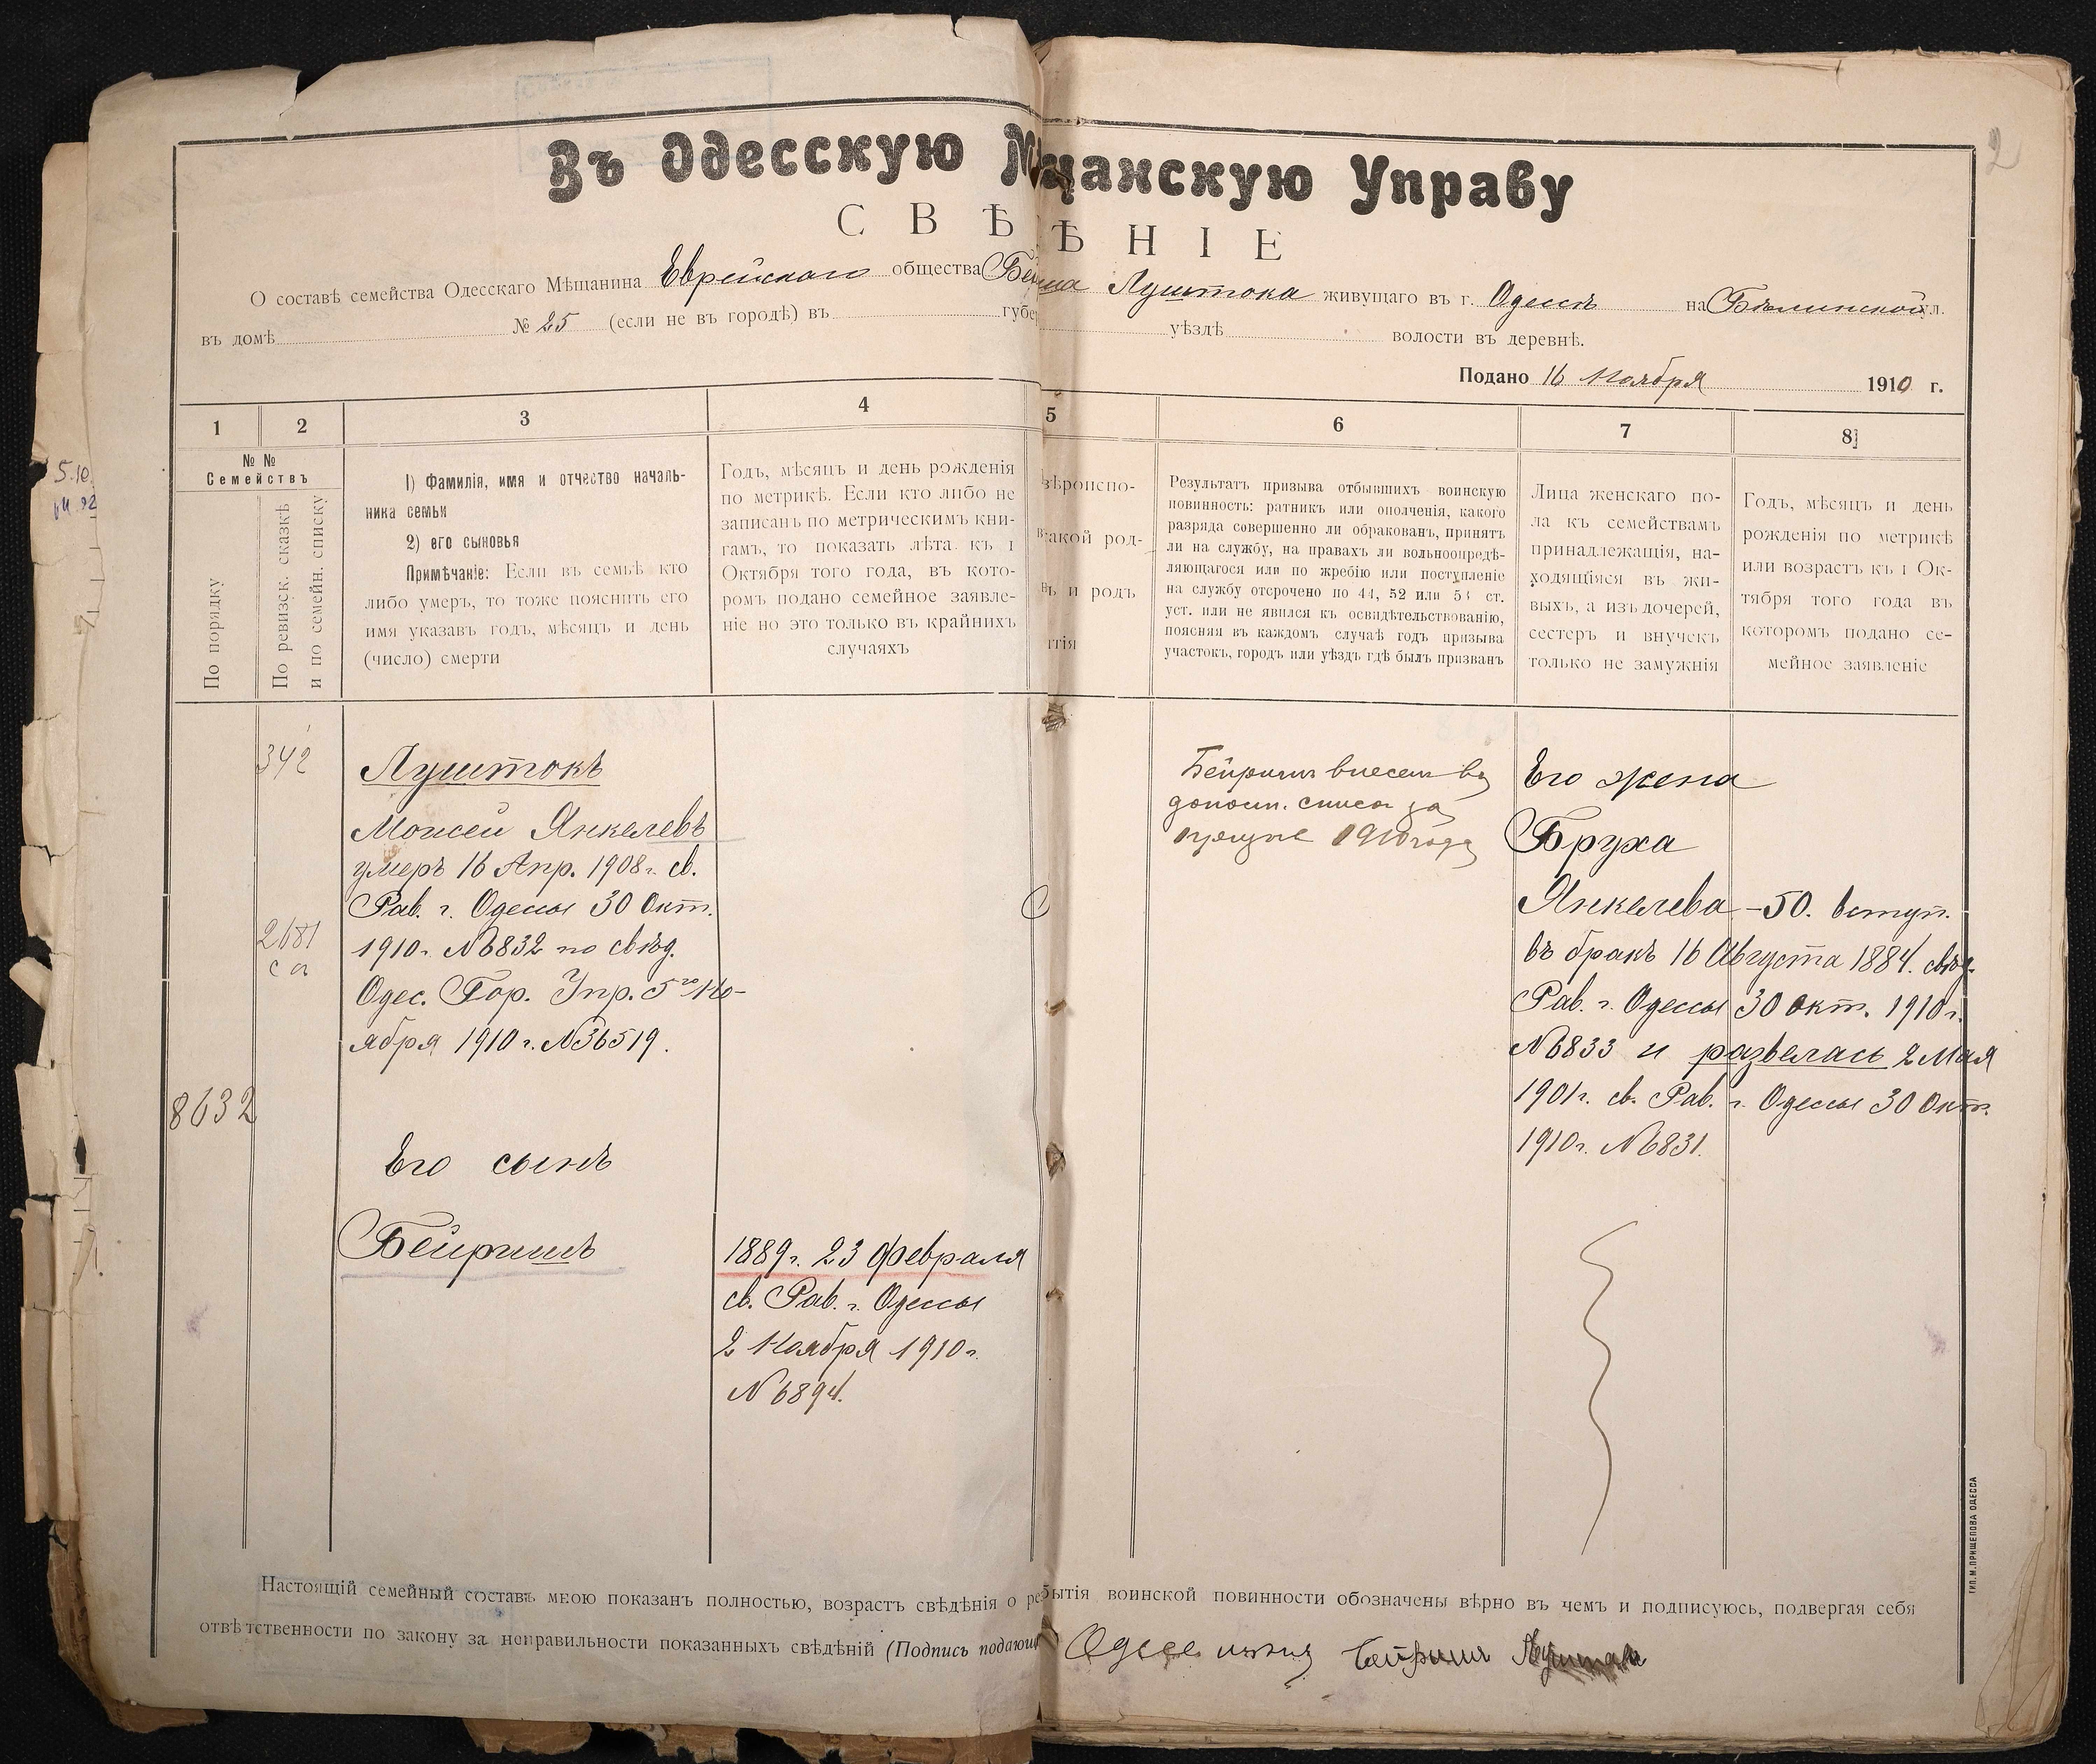 2
Въ Одесскую М щанскую Управу
СВѢ ѢНІЕ
О составѣ семейства Одесскаго Мѣщанина Еврейскаго общества Бей иша Луштока живущаго въ г. Одессѣ на Бѣлинской ул.
въ домѣ № 25 (если не въ городѣ) въ губе уѣздѣ волости въ деревнѣ.
Подано 16 Ноября 1910 г.
1 2 3 4 5 6 7 8
№ №
Семействъ
По порядку
По ревизск. сказкѣ
и по семейн. списку
1) Фамилія, имя и отчество началь-
ника семьи
2) его сыновья
Примѣчаніе: Если въ семьѣ кто
либо умеръ, то тоже пояснить его
имя указавъ годъ, мѣсяцъ и день
(число) смерти
Годъ, мѣсяцъ и день рожденія
по метрикѣ. Если кто либо не
записанъ по метрическимъ кни-
гамъ, то показать лѣта къ 1
Октября того года, въ кото-
ромъ подано семейное заявле-
ніе но это только въ крайнихъ
случаяхъ
ѣроиспо-
акой род-
ъ и родъ
гія
Результатъ призыва отбывшихъ воинскую
повинность: ратникъ или ополченія, какого
разряда совершенно ли обракованъ, принятъ
ли на службу, на правахъ ли вольноопредѣ-
ляющагося или по жребію или поступленіе
на службу отсрочено по 44, 52 или 53 ст.
уст. или не явился къ освидѣтельствованію,
поясняя въ каждомъ случаѣ годъ призыва
участокъ, городъ или уѣздъ гдѣ былъ призванъ
Лица женскаго по-
ла къ семействамъ
принадлежащія, на-
ходящіяся въ жи-
выхъ, а изъ дочерей,
сестеръ и внучекъ
только не замужнія
Годъ, мѣсяцъ и день
рожденія по метрикѣ
или возрастъ къ 1 Ок-
тября того года въ
которомъ подано се-
мейное заявленіе
342
2681
8632
Луштокъ
Моисей Янкелевъ
умеръ 16 Апр. 1908 г. св.
Рав. г. Одессы 30 Окт.
1910 г. №6832 по свѣд.
Одес. Гор. Упр. 5го Но-
ября 1910 г. №36519.
Его сынъ
Бейришъ
1889 г. 23 Февраля
св. Рав. г. Одессы
2 Ноября 1910 г.
№6894.
Бейришъ внесенъ въ
дополн. списокъ за
1910 года
Его жена
Бруха
Янкелева - 50. вступ.
въ бракъ 16 Августа 1884. свѣд.
Рав. г. Одессы 30 Окт. 1910 г.
№6833 и развелась 2 Мая
1901 г. св. Рав. г. Одессы 30 Окт.
1910 г. №6831.
Настоящій семейный составъ мною показанъ полностью, возрастъ свѣдѣнія о ре бытія воинской повинности обозначены вѣрно въ чемъ и подписуюсь, подвергая себя
отвѣтственности по закону за неправильности показанныхъ свѣдѣній (Подпись подающ Бейришъ Луштокъ
ТИП. М. ПРИЩЕПОВА ОДЕССА